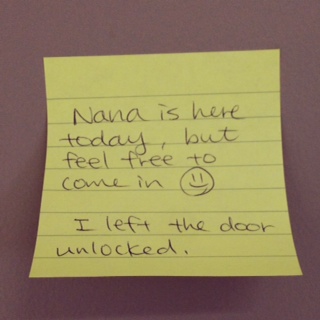 Nana is here
today, but
feel free to
come in ☺
I left the door
unlocked.